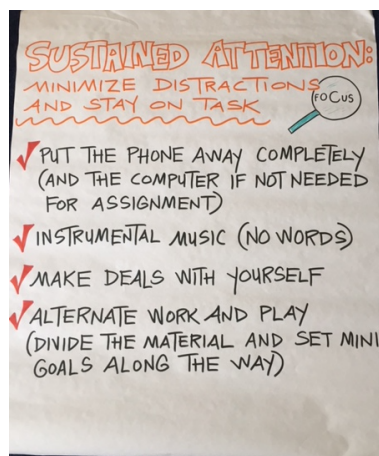 SUSTAINED ATTENTION:
MINIMIZE DISTRACTIONS
AND STAY ON TASK
FOCUS
PUT THE PHONE AWAY COMPLETELY
(AND THE COMPUTER IF NOT NEEDED
FOR ASSIGNMENT)
INSTRUMENTAL MUSIC (NO WORDS)
MAKE DEALS WITH YOURSELF
ALTERNATE WORK AND PLAY
(DIVIDE THE MATERIAL AND SET MINI
GOALS ALONG THE WAY)